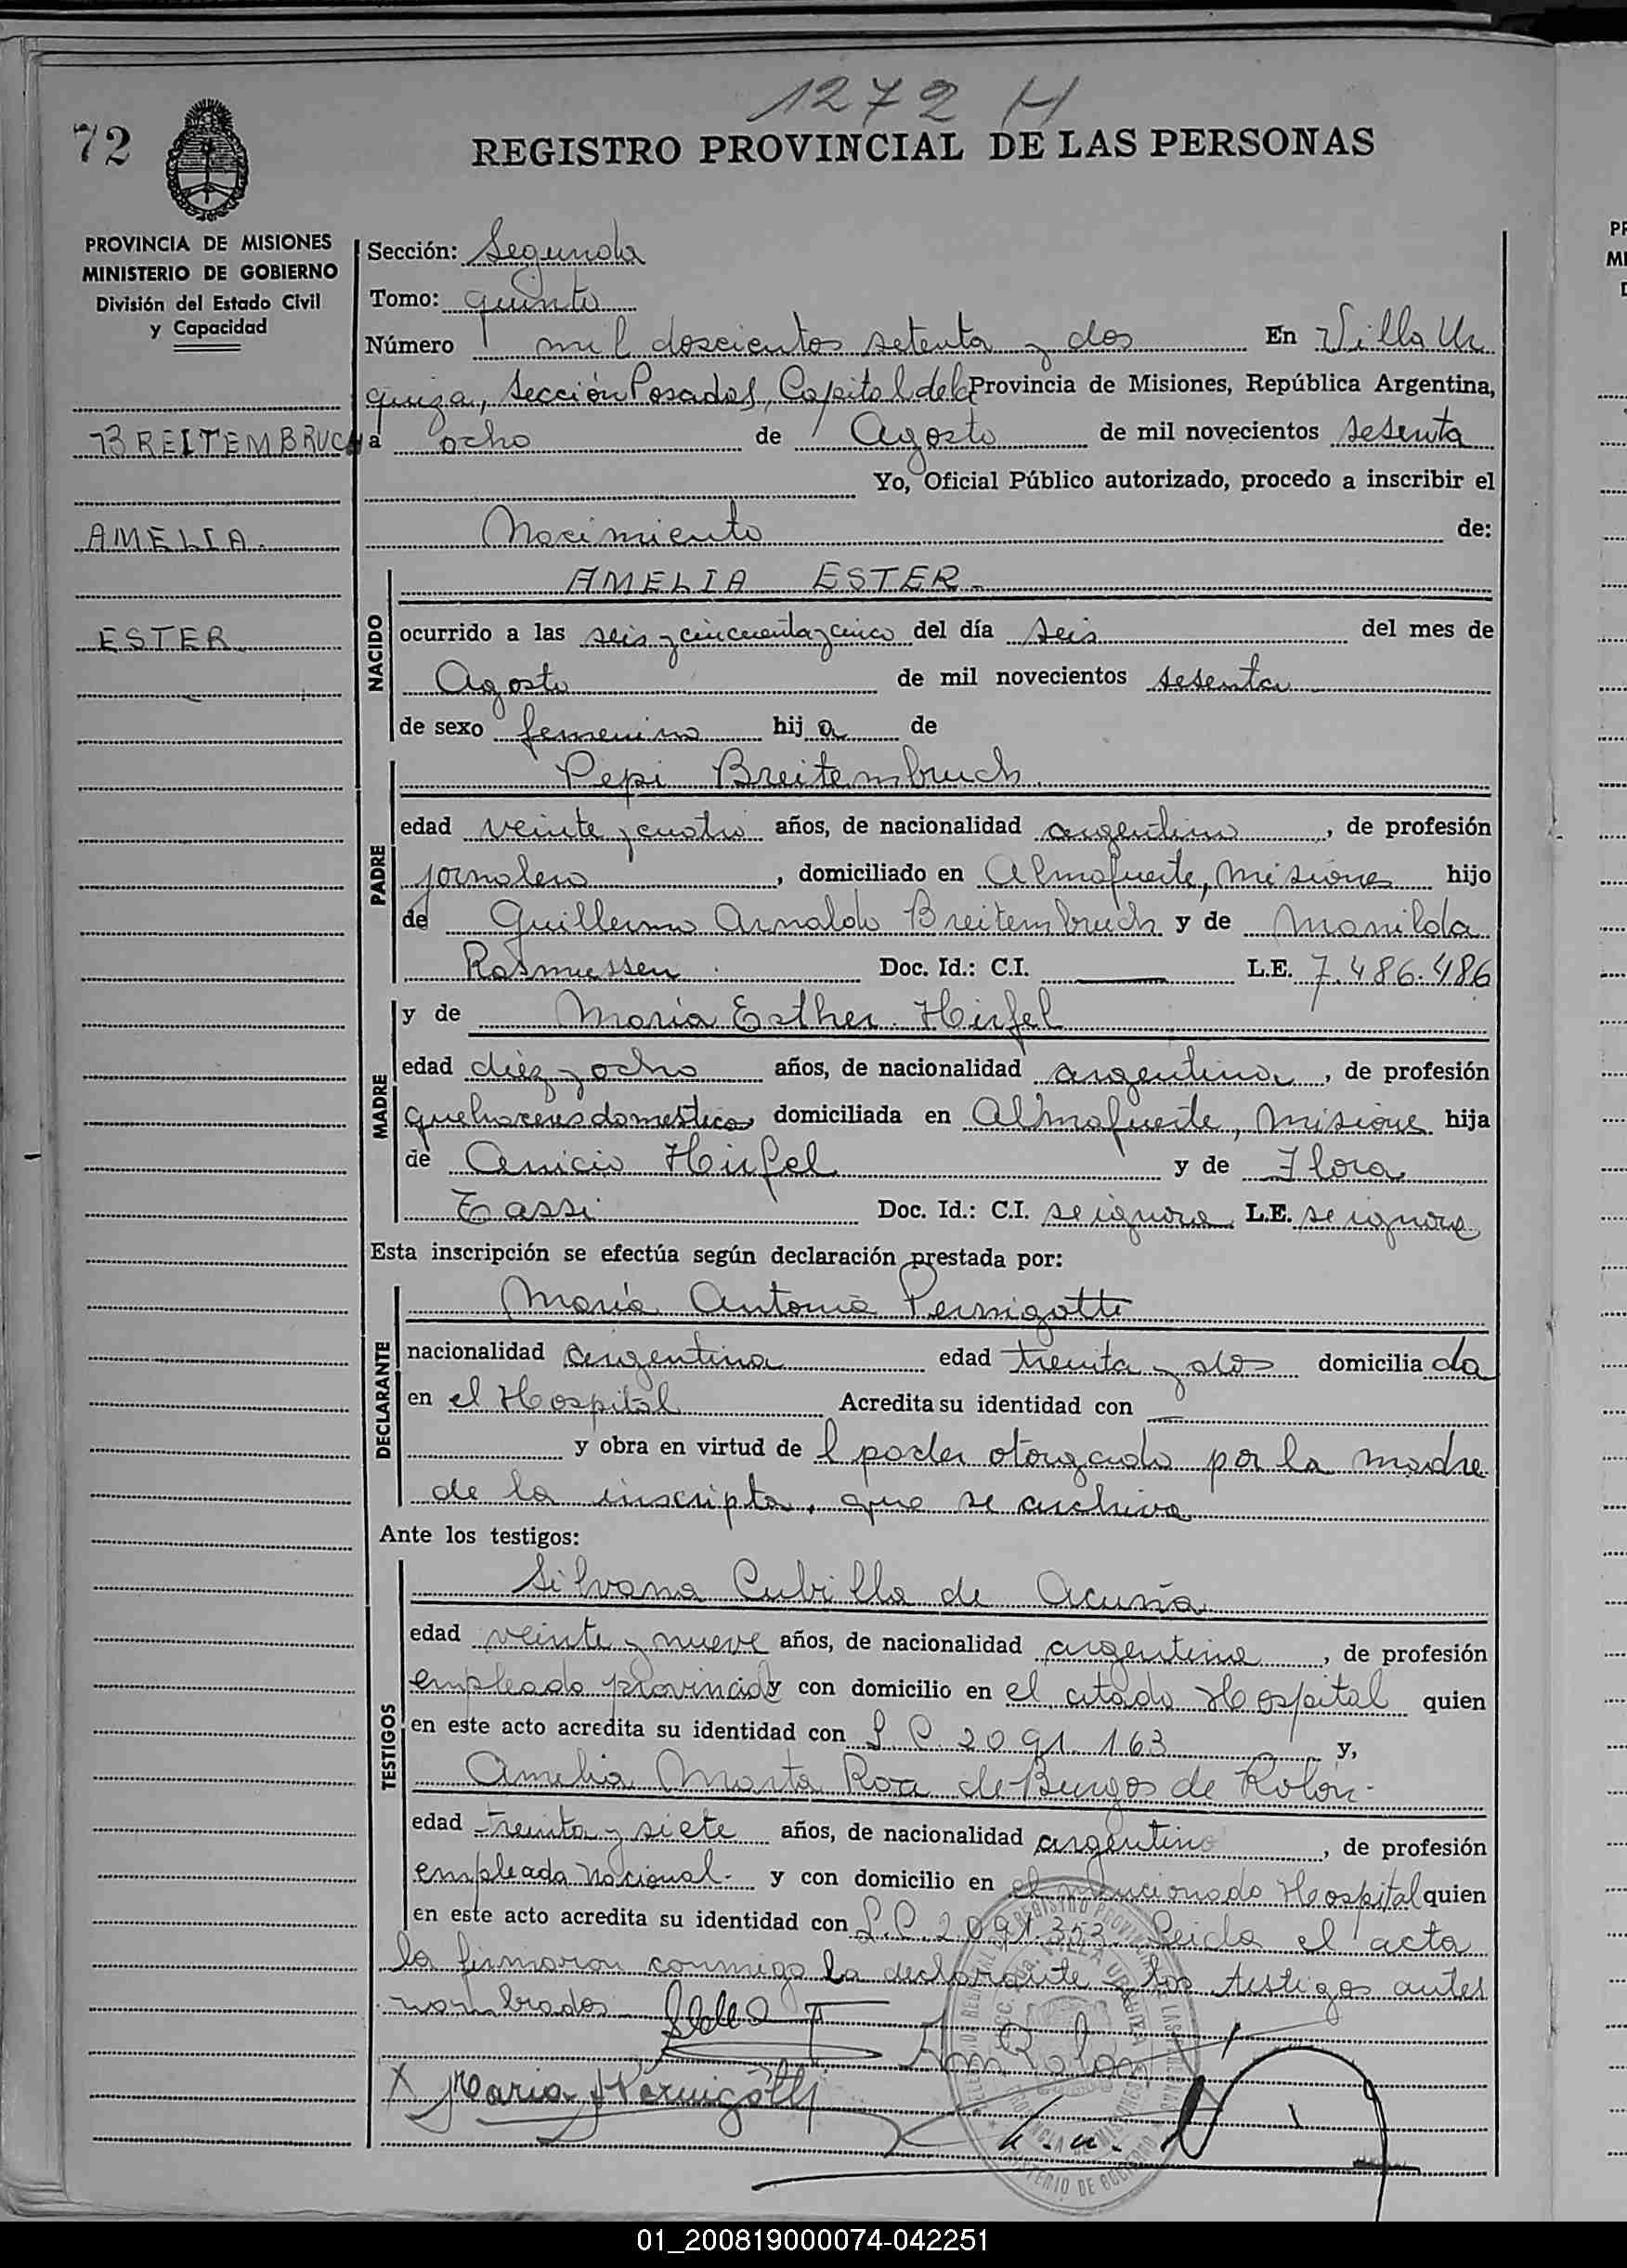 1272 H
72
REGISTRO PROVINCIAL DE LAS PERSONAS
PROVINCIA DE MISIONES
MINISTERIO DE GOBIERNO
División del Estado Civil
y Capacidad
BREITEMBRUCH
AMELIA
ESTER
Sección: Segunda
Tomo: quinto
Número mil doscientos setenta y dos En Villa Ur
quiza, Sección Posadas, Capital de la Provincia de Misiones, República Argentina,
a ocho de Agosto de mil novecientos sesenta
Yo, Oficial Público autorizado, procedo a inscribir el
Nacimiento de:
NACIDO
AMELIA ESTER.-
ocurrido a las seis y cincuenta y cinco del día seis del mes de
Agosto de mil novecientos sesenta
de sexo femenino hija de
PADRE
Pepi Breitembruch
edad veinte y cuatro años, de nacionalidad argentino, de profesión
jornalero, domiciliado en Almafuerte, Misiones hijo
de Guillermo Arnaldo Breitembruch y de Manilda
Rasmussen Doc. Id.: C.I. L.E. 7.486.486
MADRE
y de María Esther Hirfel
edad diez y ocho años, de nacionalidad argentina, de profesión
quehaceres domesticos domiciliada en Almafuerte, Misiones hija
de Anicio Hirfel y de Flora
Tassi Doc. Id.: C.I. se ignora L.E. se ignora
Esta inscripción se efectúa según declaración prestada por:
DECLARANTE
María Antonia Pernigotti
nacionalidad argentina edad treinta y dos domiciliada
en el Hospital Acredita su identidad con
y obra en virtud del poder otorgado por la madre
de la inscripta, que se archiva
Ante los testigos:
TESTIGOS
Silvana Cubilla de Acuña
edad veinte y nueve años, de nacionalidad argentina, de profesión
empleada provincial y con domicilio en el citado Hospital quien
en este acto acredita su identidad con L.C. 2091.163 y,
Amelia Marta Roa de Burgos de Rolón-
edad treinta y siete años, de nacionalidad argentina, de profesión
empleada nacional.- y con domicilio en el mencionado Hospital quien
en este acto acredita su identidad con L.C. 2091.353. Leida el acta
la firmaron conmigo la declarante y los testigos antes
nombrados
AmRolon
X Maria A Pernigotti
01_200819000074-042251